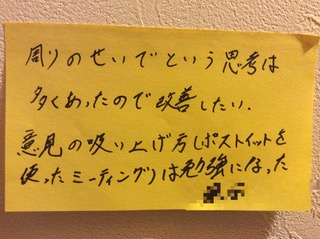 周りのせいでという思考は
多くあったので改善したい.
意見の吸い上げ方(ポストイットを
使ったミーティング)は勉強になった